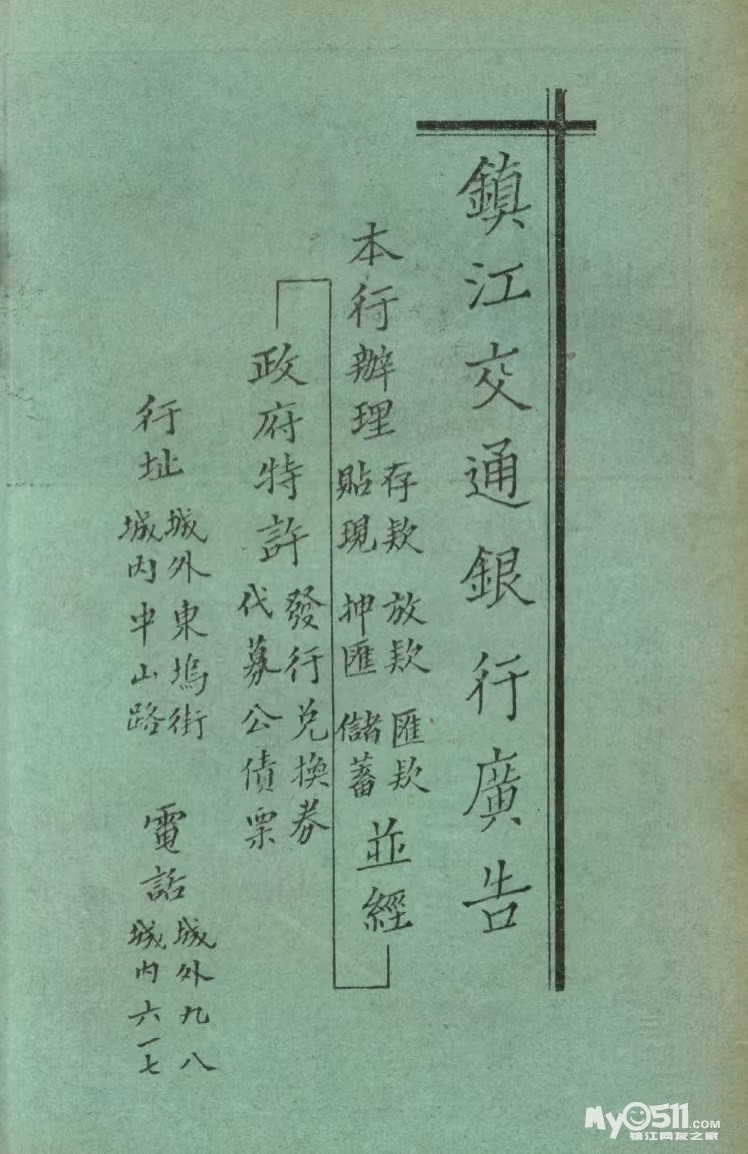 鎮江交通銀行廣告
本行辦理
存欵 放欵 匯欵
貼現 押匯 儲蓄
並經
政府特許
發行兌換券
代募公債票
行址
城外東塢街
城內中山路
電話
城外九八
城內六一七
My0511.COM
镇江网友之家